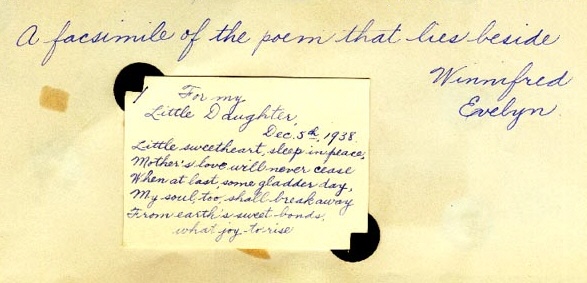 A facsimile of the poem that lies beside
Winnifred
Evelyn
For my
Little Daughter,
Dec. 5th, 1938
Little sweetheart, sleep in peace,
Mother's love will never cease
When at last, some gladder day,
My soul, too, shall break away
From earth's sweet bonds,
what joy to rise